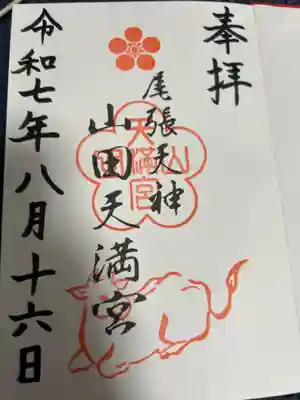 奉拝
尾張天神
山田天満宮
令和七年八月十六日
山田天満宮